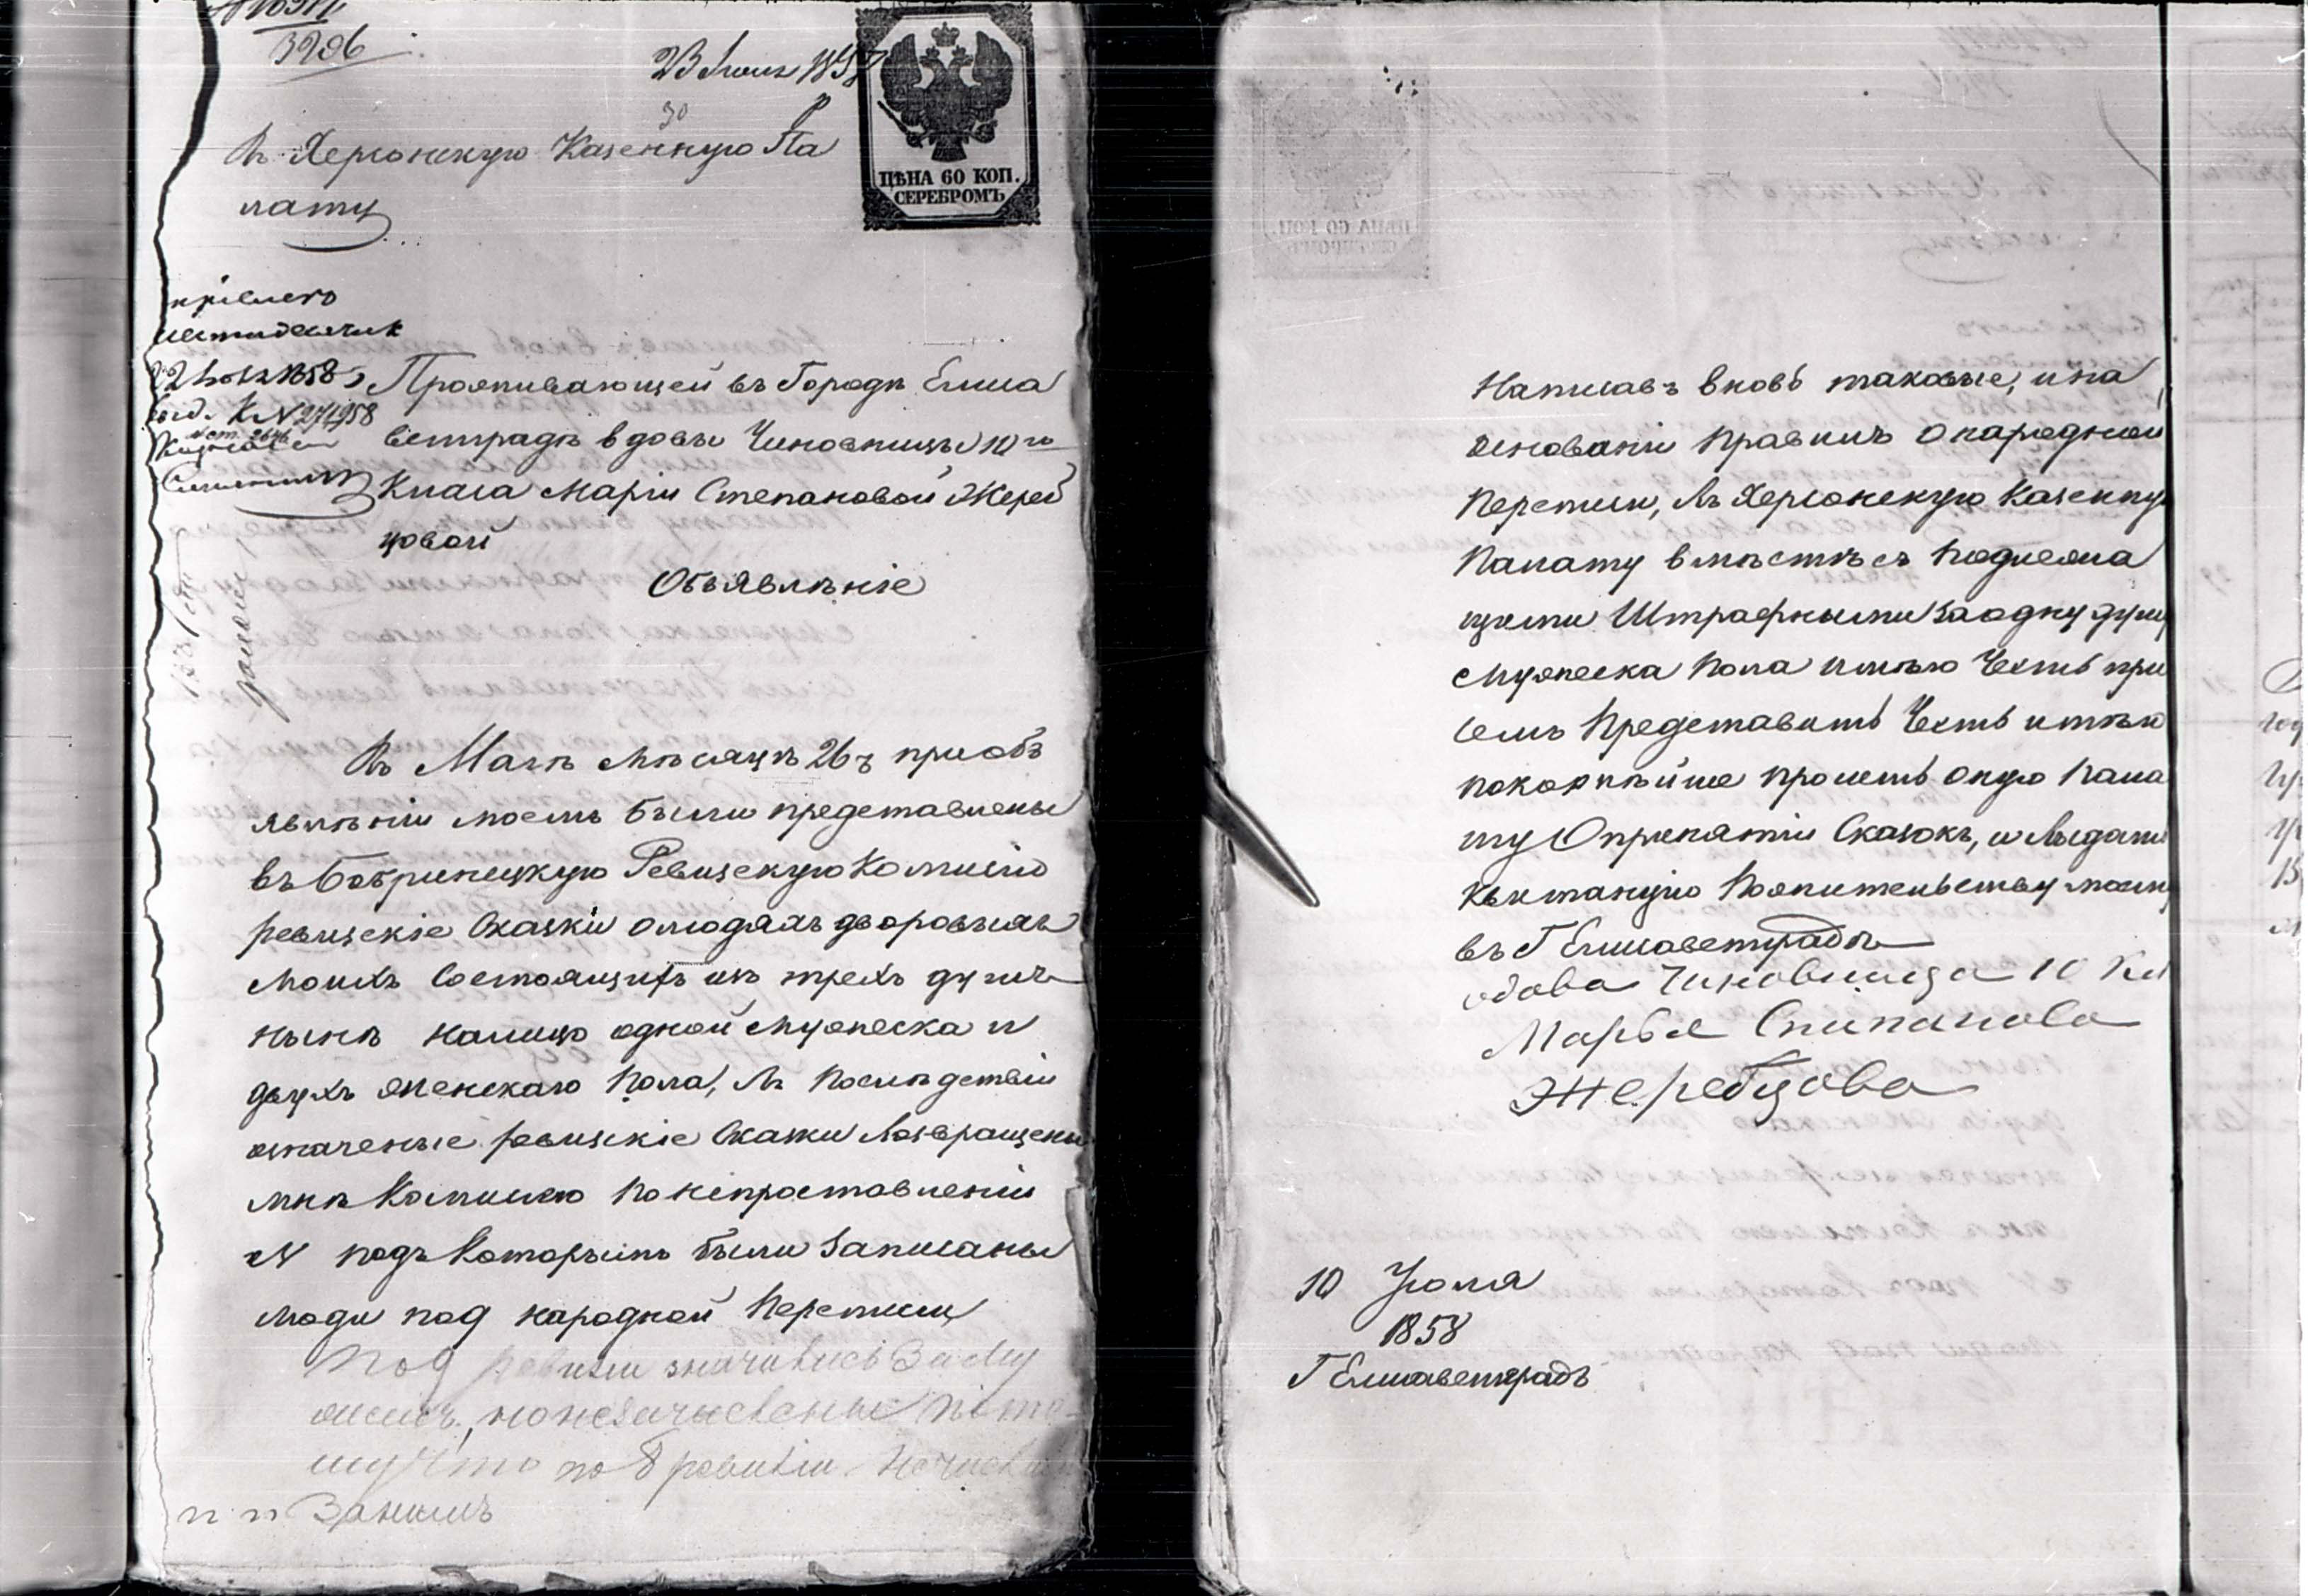 3206
23 Июля 1858
30
ЦѢНА 60 КОП.
СЕРЕБРОМЪ
Въ Херсонскую Казенную Па
лату
Проживающей въ Городѣ Елиса
ветградѣ вдовы Чиновницы 10го
Класа Маріи Степановой Жереб
цовой
Объявлѣніе
Въ Маѣ Мѣсяцѣ 26ч при объ
явлѣніи моемъ были представлены
въ Бобринецкую Ревизскую Комисію
ревизскіе Сказки о людяхъ дворовыхъ
моихъ Состоящихъ изъ трехъ душъ
нынѣ налицо одной Мужеска и
двухъ Женскаго пола, Въ Послѣдствіи
означеные ревизскіе Сказки Возвращены
мнѣ Комисіею по непроставленіи
№ подъ Которымъ были Записаны
люди под народной Переписи
под ревизіи значились За Му
жемъ, но не зачисленные пото
му что по 8 ревизіи
Занимъ
Написавъ вновь таковые, и на
основаніи правилъ о народной
Переписи, Въ Херсонскую Казенну
Палату вмѣстѣ съ подлежа
щими Штрафными за одну душу
Мужеска пола имѣю Честь при
семъ Представить Честь имѣю
покорнѣйше просить оную Пала
ту О принятіи Сказокъ, и Выдати
Квитанцію по жительству моему
въ Г Елисаветградѣ
вдова Чиновница 10 Кл
Марья Стипанова
Жеребцова
10 Июля
1858
Г Елисаветградъ